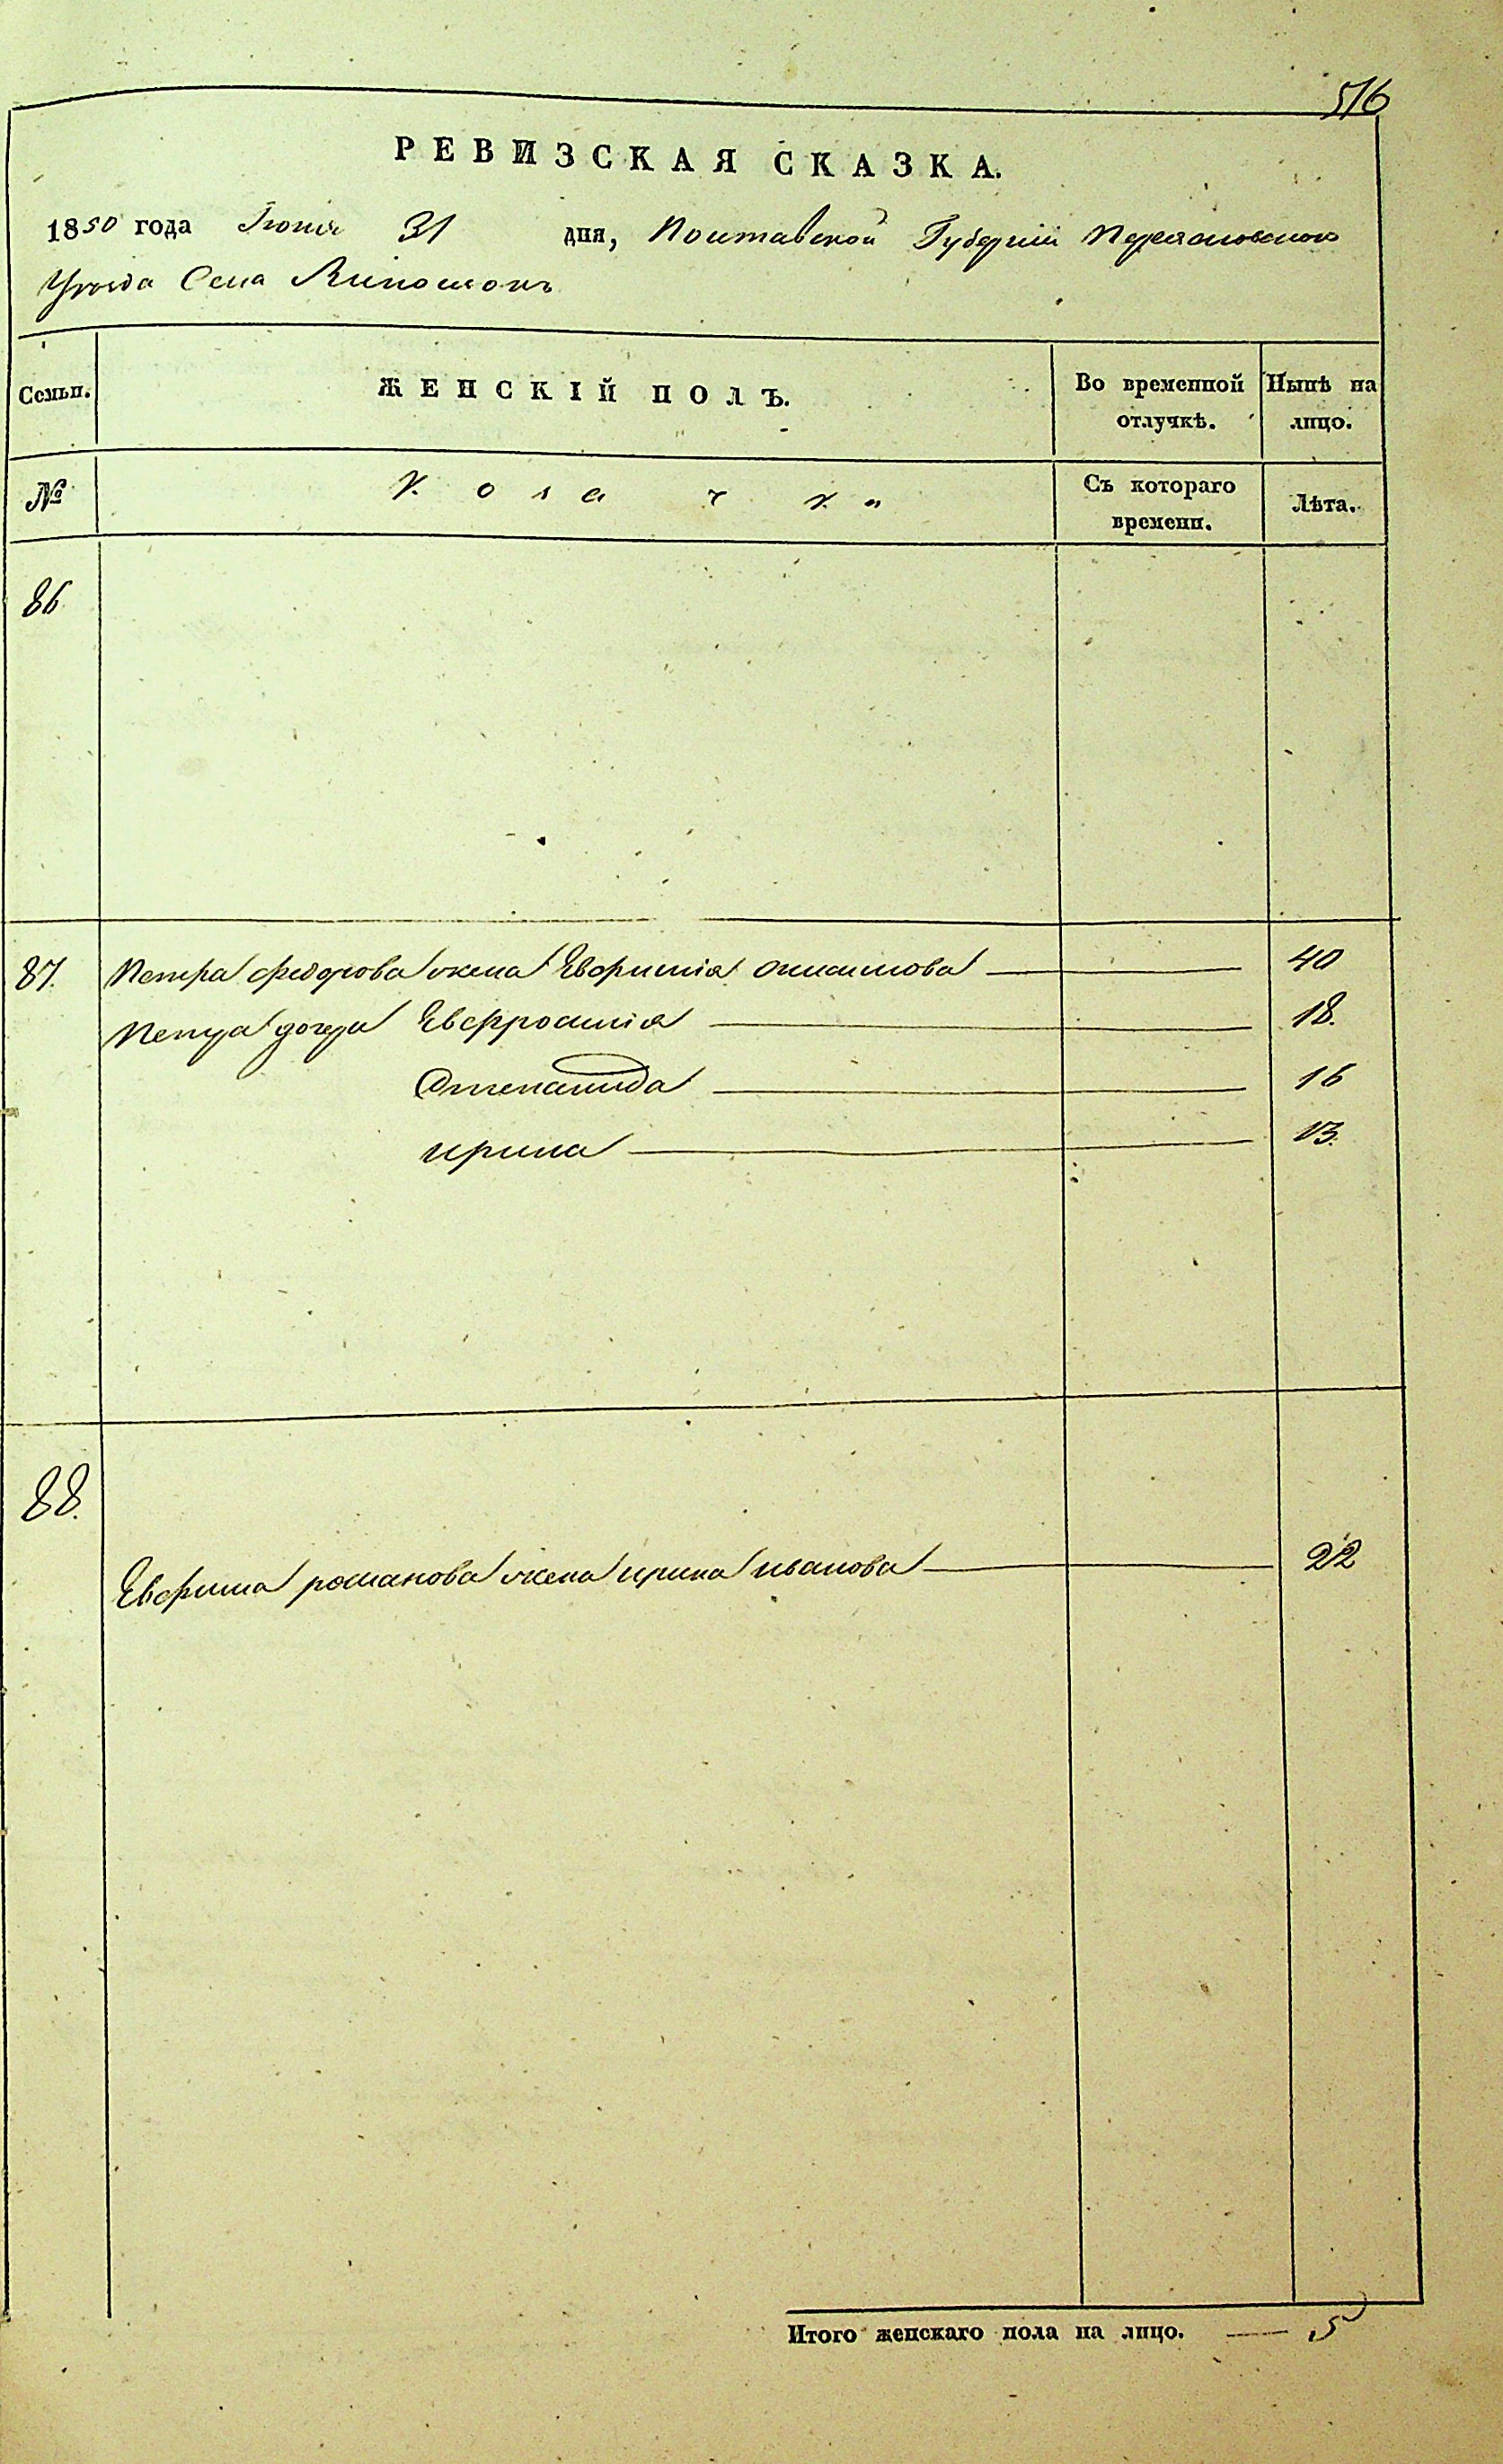 516
РЕВИЗСКАЯ СКАЗКА.
1850 года Іюня 31 дня, Полтавской Губерніи Переяславского
Уѣзда Села
Семьи. ЖЕНСКІЙ ПОЛЪ. Во временной отлучкѣ. Нынѣ на лицо.
№ Козачки Съ котораго времени. Лѣта.
86
87. Петра федорова жена Евфимія 40
Петра дочери Евфросинія 18.
Степанида 16
ирина 13.
88.
Евфима романова жена ирина иванова 22
Итого женскаго пола на лицо. — 5